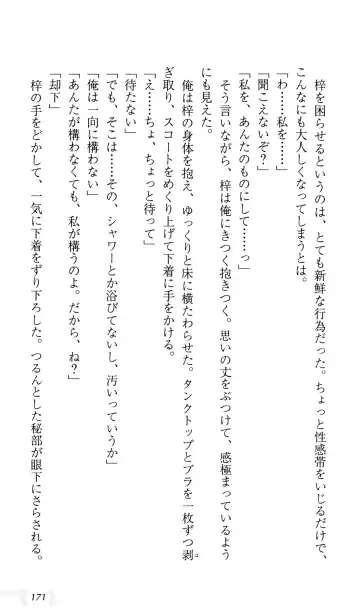 梓を困らせるというのは、とても新鮮な行為だった。ちょっと性感帯をいじるだけで、
こんなにも大人しくなってしまうとは。
「わ……私を……」
「聞こえないぞ？」
「私を、あんたのものにして……っ」
そう言いながら、梓は俺にきつく抱きつく。思いの丈をぶつけて、感極まっているよう
にも見えた。
俺は梓の身体を抱え、ゆっくりと床に横たわらせた。タンクトップとブラを一枚ずつ剥は
ぎ取り、スコートをめくり上げて下着に手をかける。
「え……ちょ、ちょっと待って」
「待たない」
「でも、そこは……その、シャワーとか浴びてないし、汚いっていうか」
「俺は一向に構わない」
「あんたが構わなくても、私が構うのよ。だから、ね？」
「却下」
梓の手をどかして、一気に下着をずり下ろした。つるんとした秘部が眼下にさらされる。
171